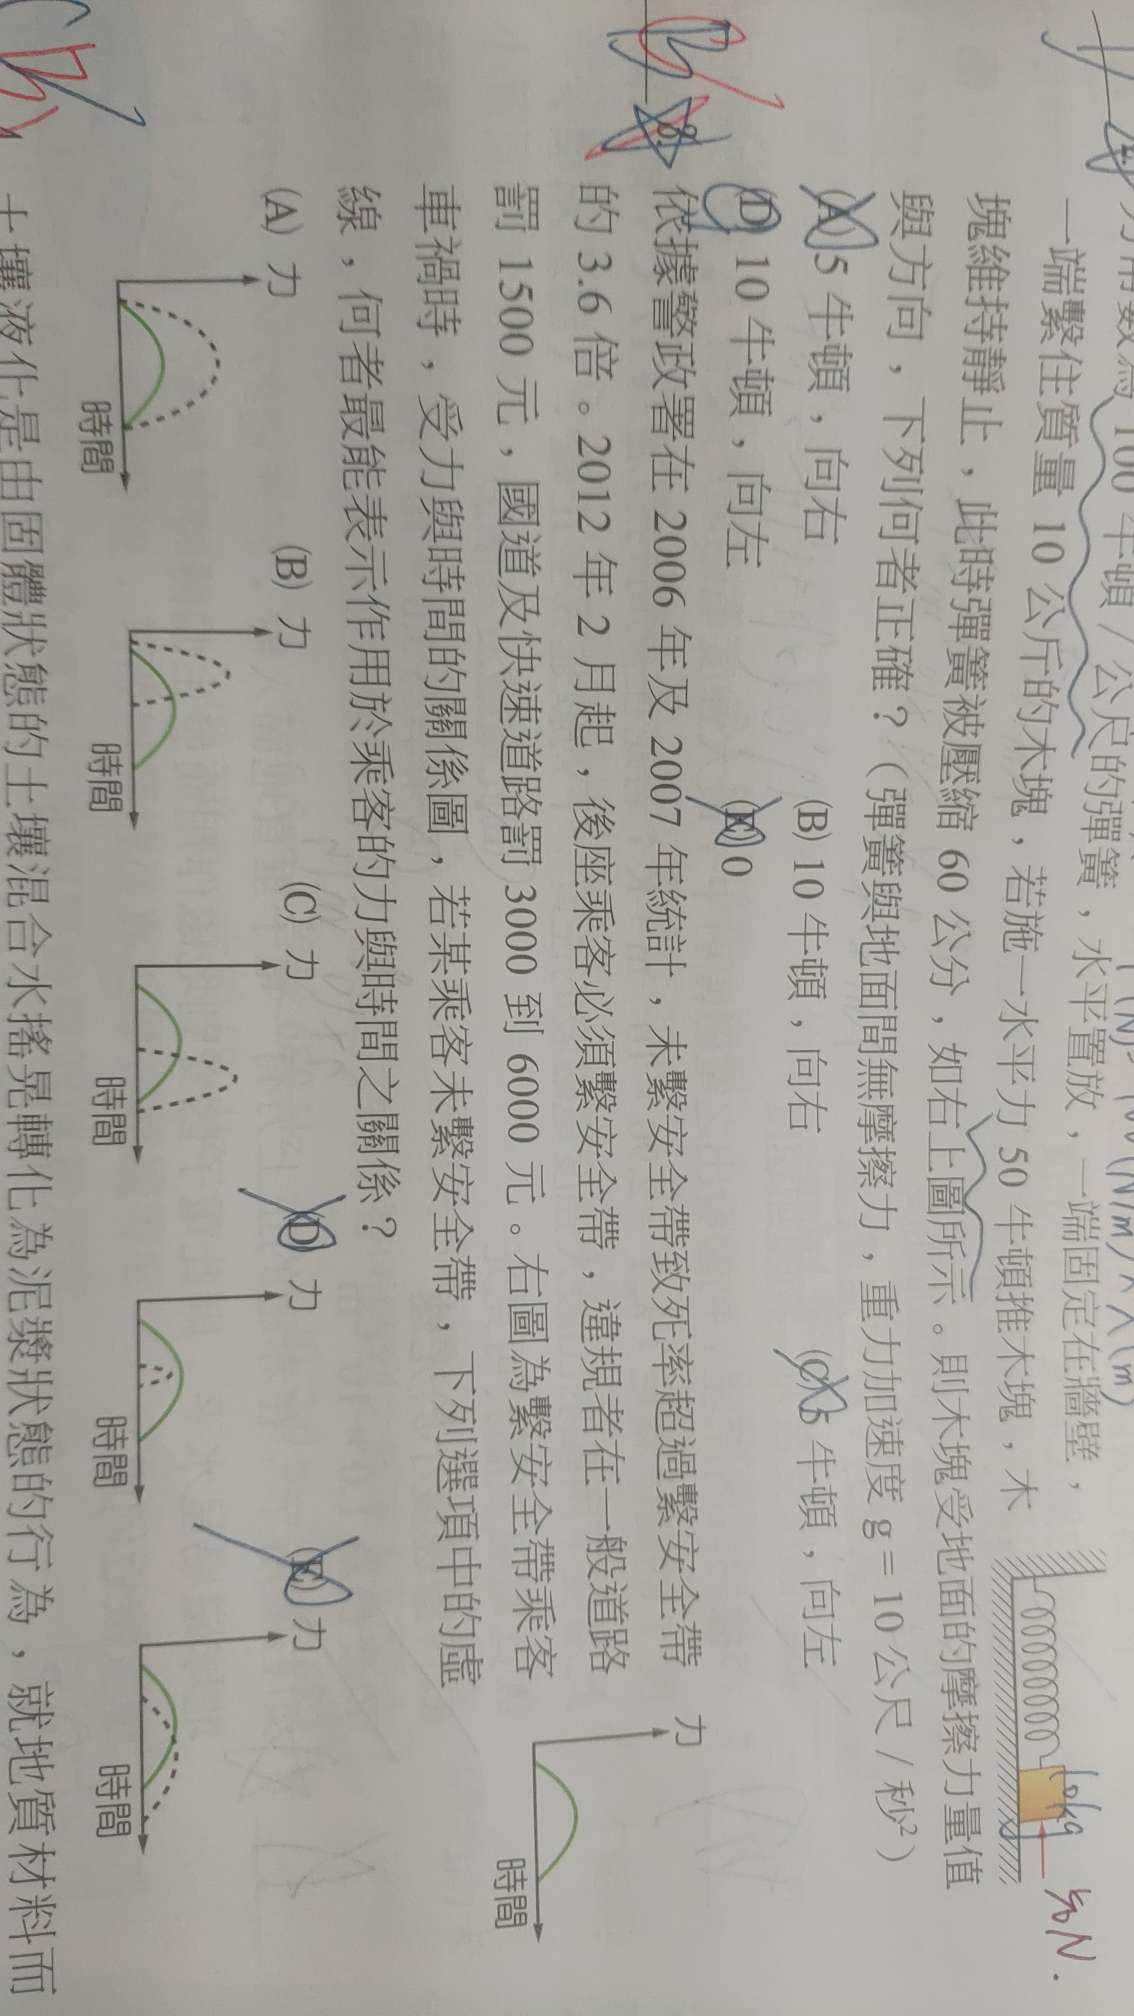 力常數為 100 牛頓／公尺的彈簧，水平置放，一端固定在牆壁，
一端繫住質量 10 公斤的木塊，若施一水平力 50 牛頓推木塊，木
塊維持靜止，此時彈簧被壓縮 60 公分，如右上圖所示。則木塊受地面的摩擦力量值
與方向，下列何者正確？（彈簧與地面間無摩擦力，重力加速度 g = 10 公尺／秒²）
(A) 5 牛頓，向右
(B) 10 牛頓，向右
(C) 5 牛頓，向左
(D) 10 牛頓，向左
(E) 0
10kg
50N.
8.
依據警政署在 2006 年及 2007 年統計，未繫安全帶致死率超過繫安全帶
的 3.6 倍。2012 年 2 月起，後座乘客必須繫安全帶，違規者在一般道路
罰 1500 元，國道及快速道路罰 3000 到 6000 元。右圖為繫安全帶乘客
車禍時，受力與時間的關係圖，若某乘客未繫安全帶，下列選項中的虛
線，何者最能表示作用於乘客的力與時間之關係？
力
時間
(A) 力
時間
(B) 力
時間
(C) 力
時間
(D) 力
時間
(E) 力
時間
土壤液化是由固體狀態的土壤混合水搖晃轉化為泥漿狀態的行為，就地質材料而